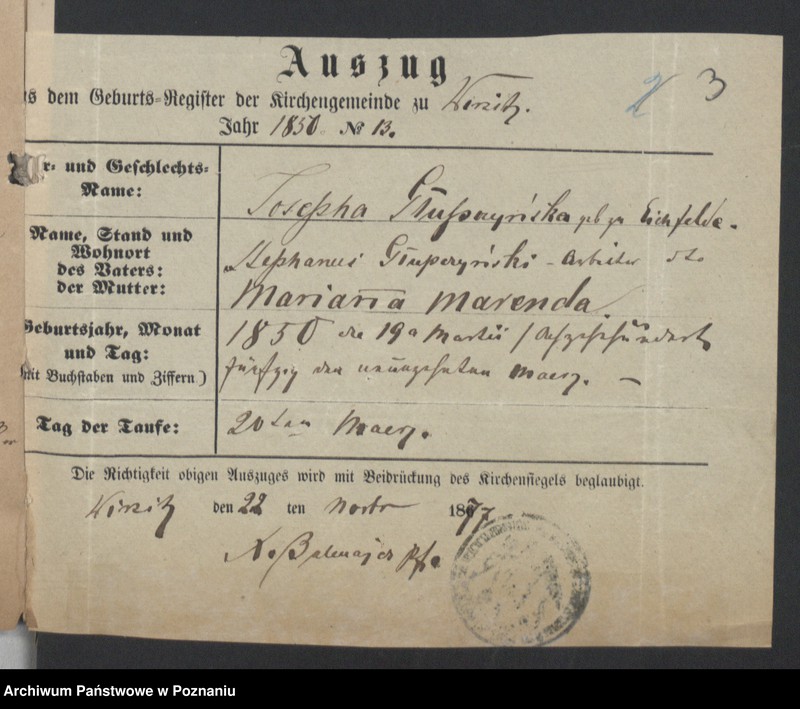 3
Auszug
s dem Geburts-Register der Kirchengemeinde zu Wirsitz.
Jahr 1850 № 13.
r- und Geschlechts-
Name:
Josepha Głupczyńska geb zu Eichfelde.
Name, Stand und
Wohnort
des Vaters:
der Mutter:
Stephanus Głupczyński - Arbeiter
Marianna Marenda.
Geburtsjahr, Monat
und Tag:
(mit Buchstaben und Ziffern)
1850 die 19a Martii / Achzehhundert
fünfzig den neunzehnten Maerz. —
Tag der Taufe:
20ten Maerz.
Die Richtigkeit obigen Auszuges wird mit Beidrückung des Kirchensiegels beglaubigt.
Wirsitz den 22 ten Novbr 1877
Archiwum Państwowe w Poznaniu